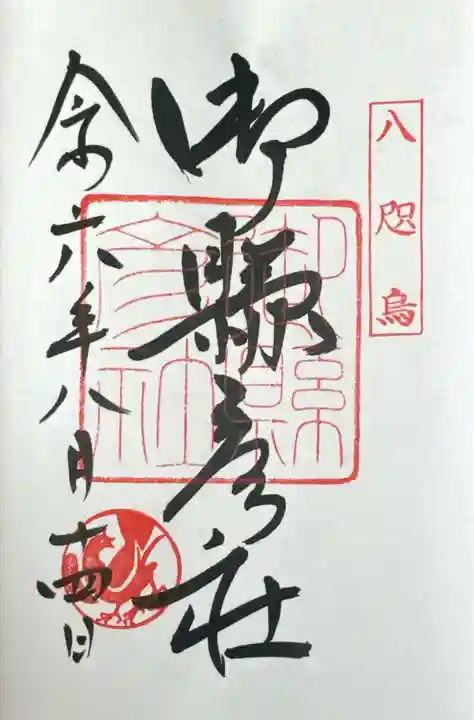 八咫烏
御縣彦社
令和六年八月十四日